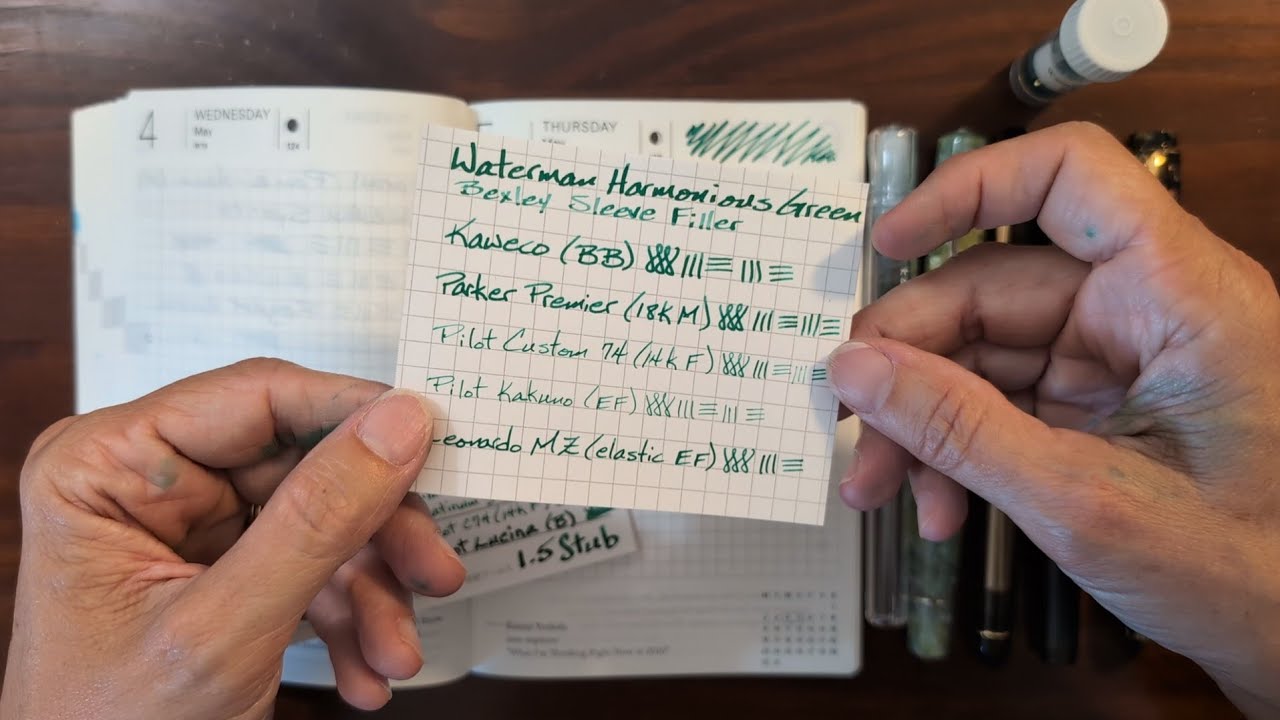 4 WEDNESDAY
May
THURSDAY
Waterman Harmonious Green
Bexley Sleeve Filler
Kaweco (BB)
Parker Premier (18K M)
Pilot Custom 74 (14k F)
Pilot Kakuno (EF)
Leonardo MZ (elastic EF)
C74 (14k F)
Lucina (B)
1.5 Stub